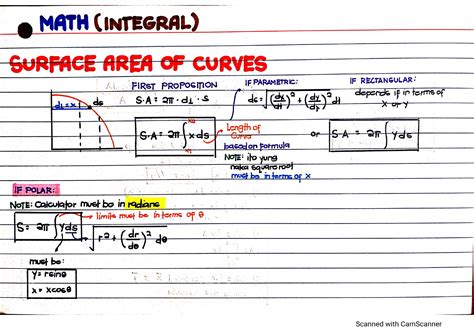 MATH (INTEGRAL)
SURFACE AREA OF CURVES
FIRST PROPOSITION
S·A = 2π · d⊥ · S
d⊥ = x
ds
S·A = 2π ∫ x ds
x2
x1
Length of
Curve
based on formula
NOTE: ito yung
naka square root
must be in terms of x
IF PARAMETRIC:
ds = √((dx/dt)² + (dy/dt)²) dt
IF RECTANGULAR:
depends if in terms of
x or y
or
S·A = 2π ∫ y ds
IF POLAR:
NOTE: Calculator must be in radians
limits must be in terms of θ
S = 2π ∫ y ds
√(r² + (dr/dθ)²) dθ
must be:
y = rsinθ
x = rcosθ
Scanned with CamScanner